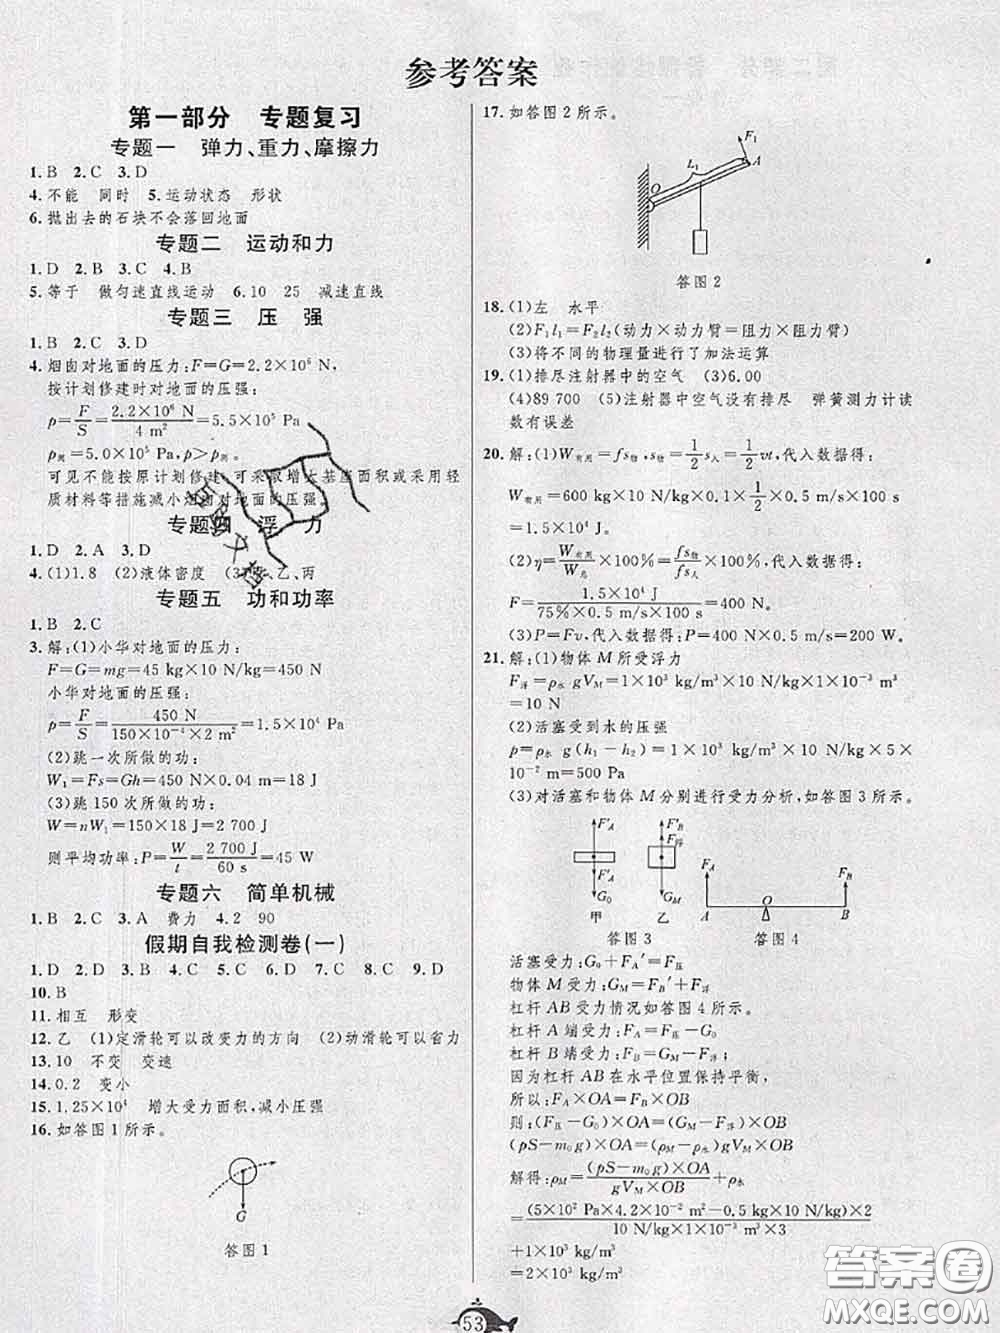 参考答案
第一部分 专题复习
专题一 弹力、重力、摩擦力
1. B 2. C 3. D
4. 不能 同时 5. 运动状态 形状
6. 抛出去的石块不会落回地面
专题二 运动和力
1. D 2. B 3. C 4. B
5. 等于 做匀速直线运动 6. 10 25 减速直线
专题三 压 强
1. B 2. C 3. D
4. 烟囱对地面的压力:F=G=2.2×10⁶ N,
按计划修建时对地面的压强:
p=F/S=2.2×10⁶ N/4 m²=5.5×10⁵ Pa
p测=5.0×10⁵ Pa,p>p测
可见不能按原计划修建,可采取增大基座面积或采用轻
质材料等措施减小烟囱对地面的压强。
专题四 浮 力
1. D 2. A 3. D
4. (1)1.8 (2)液体密度 乙、丙
专题五 功和功率
1. B 2. C
3. 解:(1)小华对地面的压力:
F=G=mg=45 kg×10 N/kg=450 N
小华对地面的压强:
p=F/S=450 N/150×10⁻⁴×2 m²=1.5×10⁴ Pa
(2)跳一次所做的功:
W₁=Fs=Gh=450 N×0.04 m=18 J
(3)跳 150 次所做的功:
W=nW₁=150×18 J=2 700 J
则平均功率:P=W/t=2 700 J/60 s=45 W
专题六 简单机械
1. B 2. C 3. A 费力 4. 2 90
假期自我检测卷(一)
1. D 2. D 3. B 4. C 5. C 6. D 7. C 8. C 9. D
10. B
11. 相互 形变
12. 乙 (1)定滑轮可以改变力的方向 (2)动滑轮可以省力
13. 10 不变 变速
14. 0.2 变小
15. 1.25×10⁴ 增大受力面积,减小压强
16. 如答图 1 所示。
G
答图 1
17. 如答图 2 所示。
F₁
L₁
A
O
答图 2
18. (1)左 水平
(2)F₁l₁=F₂l₂(动力×动力臂=阻力×阻力臂)
(3)将不同的物理量进行了加法运算
19. (1)排尽注射器中的空气 (3)6.00
(4)89 700 (5)注射器中空气没有排尽 弹簧测力计读
数有误差
20. 解:(1)W有用=fs物,s物=1/2s人=1/2vt,代入数据得:
W有用=600 kg×10 N/kg×0.1×1/2×0.5 m/s×100 s
=1.5×10⁴ J。
(2)η=W有用/W总×100%=fs物/fs人×100%,代入数据得:
F=1.5×10⁴ J/75%×0.5 m/s×100 s=400 N。
(3)P=Fv,代入数据得:P=400 N×0.5 m/s=200 W。
21. 解:(1)物体 M 所受浮力
F浮=ρ水 gVM=1×10³ kg/m³×10 N/kg×1×10⁻³ m³
=10 N
(2)活塞受到水的压强
p=ρ水 g(h₁-h₂)=1×10³ kg/m³×10 N/kg×5×
10⁻² m=500 Pa
(3)对活塞和物体 M 分别进行受力分析,如答图 3 所示。
F′A
G₀
甲
F′B
F浮
GM
乙
答图 3
FA
FB
A
O
B
答图 4
活塞受力:G₀+FA′=F压
物体 M 受力:GM=FB′+F浮
杠杆 AB 受力情况如答图 4 所示。
杠杆 A 端受力:FA=F压-G₀
杠杆 B 端受力:FB=GM-F浮;
因为杠杆 AB 在水平位置保持平衡,
所以:FA×OA=FB×OB
则:(F压-G₀)×OA=(GM-F浮)×OB
(pS-m₀g)×OA=(ρM-ρ水)gVM×OB
解得:ρM=(pS-m₀g)×OA/gVM×OB+ρ水
=(5×10² Pa×4.2×10⁻² m²-0.5 kg×10 N/kg)×2/10 N/kg×1×10⁻³ m³×3
+1×10³ kg/m³
=2×10³ kg/m³
53
答案圈
MXQE.COM